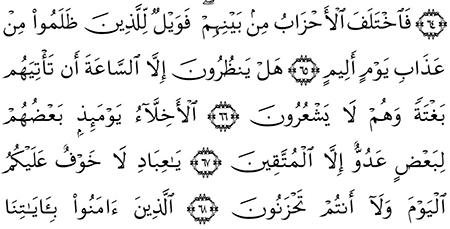 ﴿٦٤﴾ فَٱخْتَلَفَ ٱلْأَحْزَابُ مِنۢ بَيْنِهِمْ ۖ فَوَيْلٌ لِّلَّذِينَ ظَلَمُوا۟ مِنْ
عَذَابِ يَوْمٍ أَلِيمٍ ﴿٦٥﴾ هَلْ يَنظُرُونَ إِلَّا ٱلسَّاعَةَ أَن تَأْتِيَهُم
بَغْتَةً وَهُمْ لَا يَشْعُرُونَ ﴿٦٦﴾ ٱلْأَخِلَّآءُ يَوْمَئِذٍۭ بَعْضُهُمْ
لِبَعْضٍ عَدُوٌّ إِلَّا ٱلْمُتَّقِينَ ﴿٦٧﴾ يَٰعِبَادِ لَا خَوْفٌ عَلَيْكُمُ
ٱلْيَوْمَ وَلَآ أَنتُمْ تَحْزَنُونَ ﴿٦٨﴾ ٱلَّذِينَ ءَامَنُوا۟ بِـَٔايَٰتِنَا